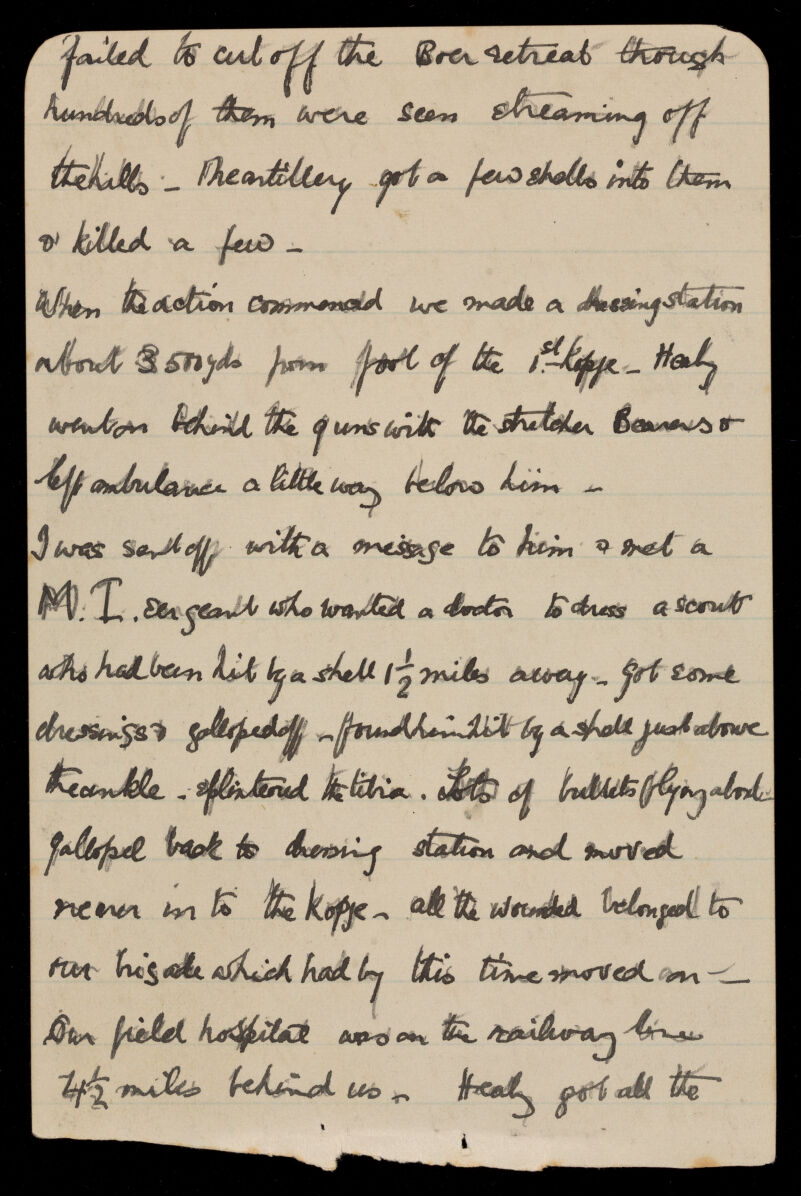 failed to cut off the Boer retreat though
hundreds of them were seen streaming off
the hills - The artillery got a few shells into them
& killed a few -
When the action commenced we made a dressing station
about 3500 yds from foot of the 1st Kopje - Healy
went on behind the guns with the stretcher Bearers &
left ambulance a little way below him -
I was sent off with a message to him & met a
M.I. sergeant who wanted a doctor to dress a scout
who had been hit by a shell 1½ miles away - got some
dressings & galloped off - found him hit by a shell just above
the ankle - splintered the tibia. Lots of bullets flying about
Gallopel back to dressing station and moved
nearer in to the Kopje - all the wounded belonged to
our brigade which had by this time moved on -
Our field hospital was on the railway line
4½ miles behind us - Healy got all the